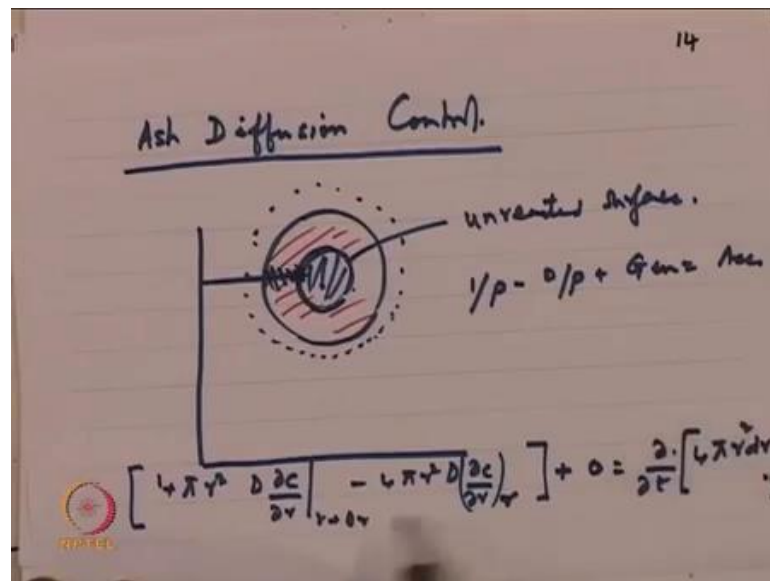 14
Ash Diffusion Control.
unreacted surface.
I/p - O/p + Gen = Acc
[ 4πr² D ∂c/∂r |r+Δr - 4πr² D (∂c/∂r)r ] + 0 = ∂/∂t [ 4πr²dr
NPTEL